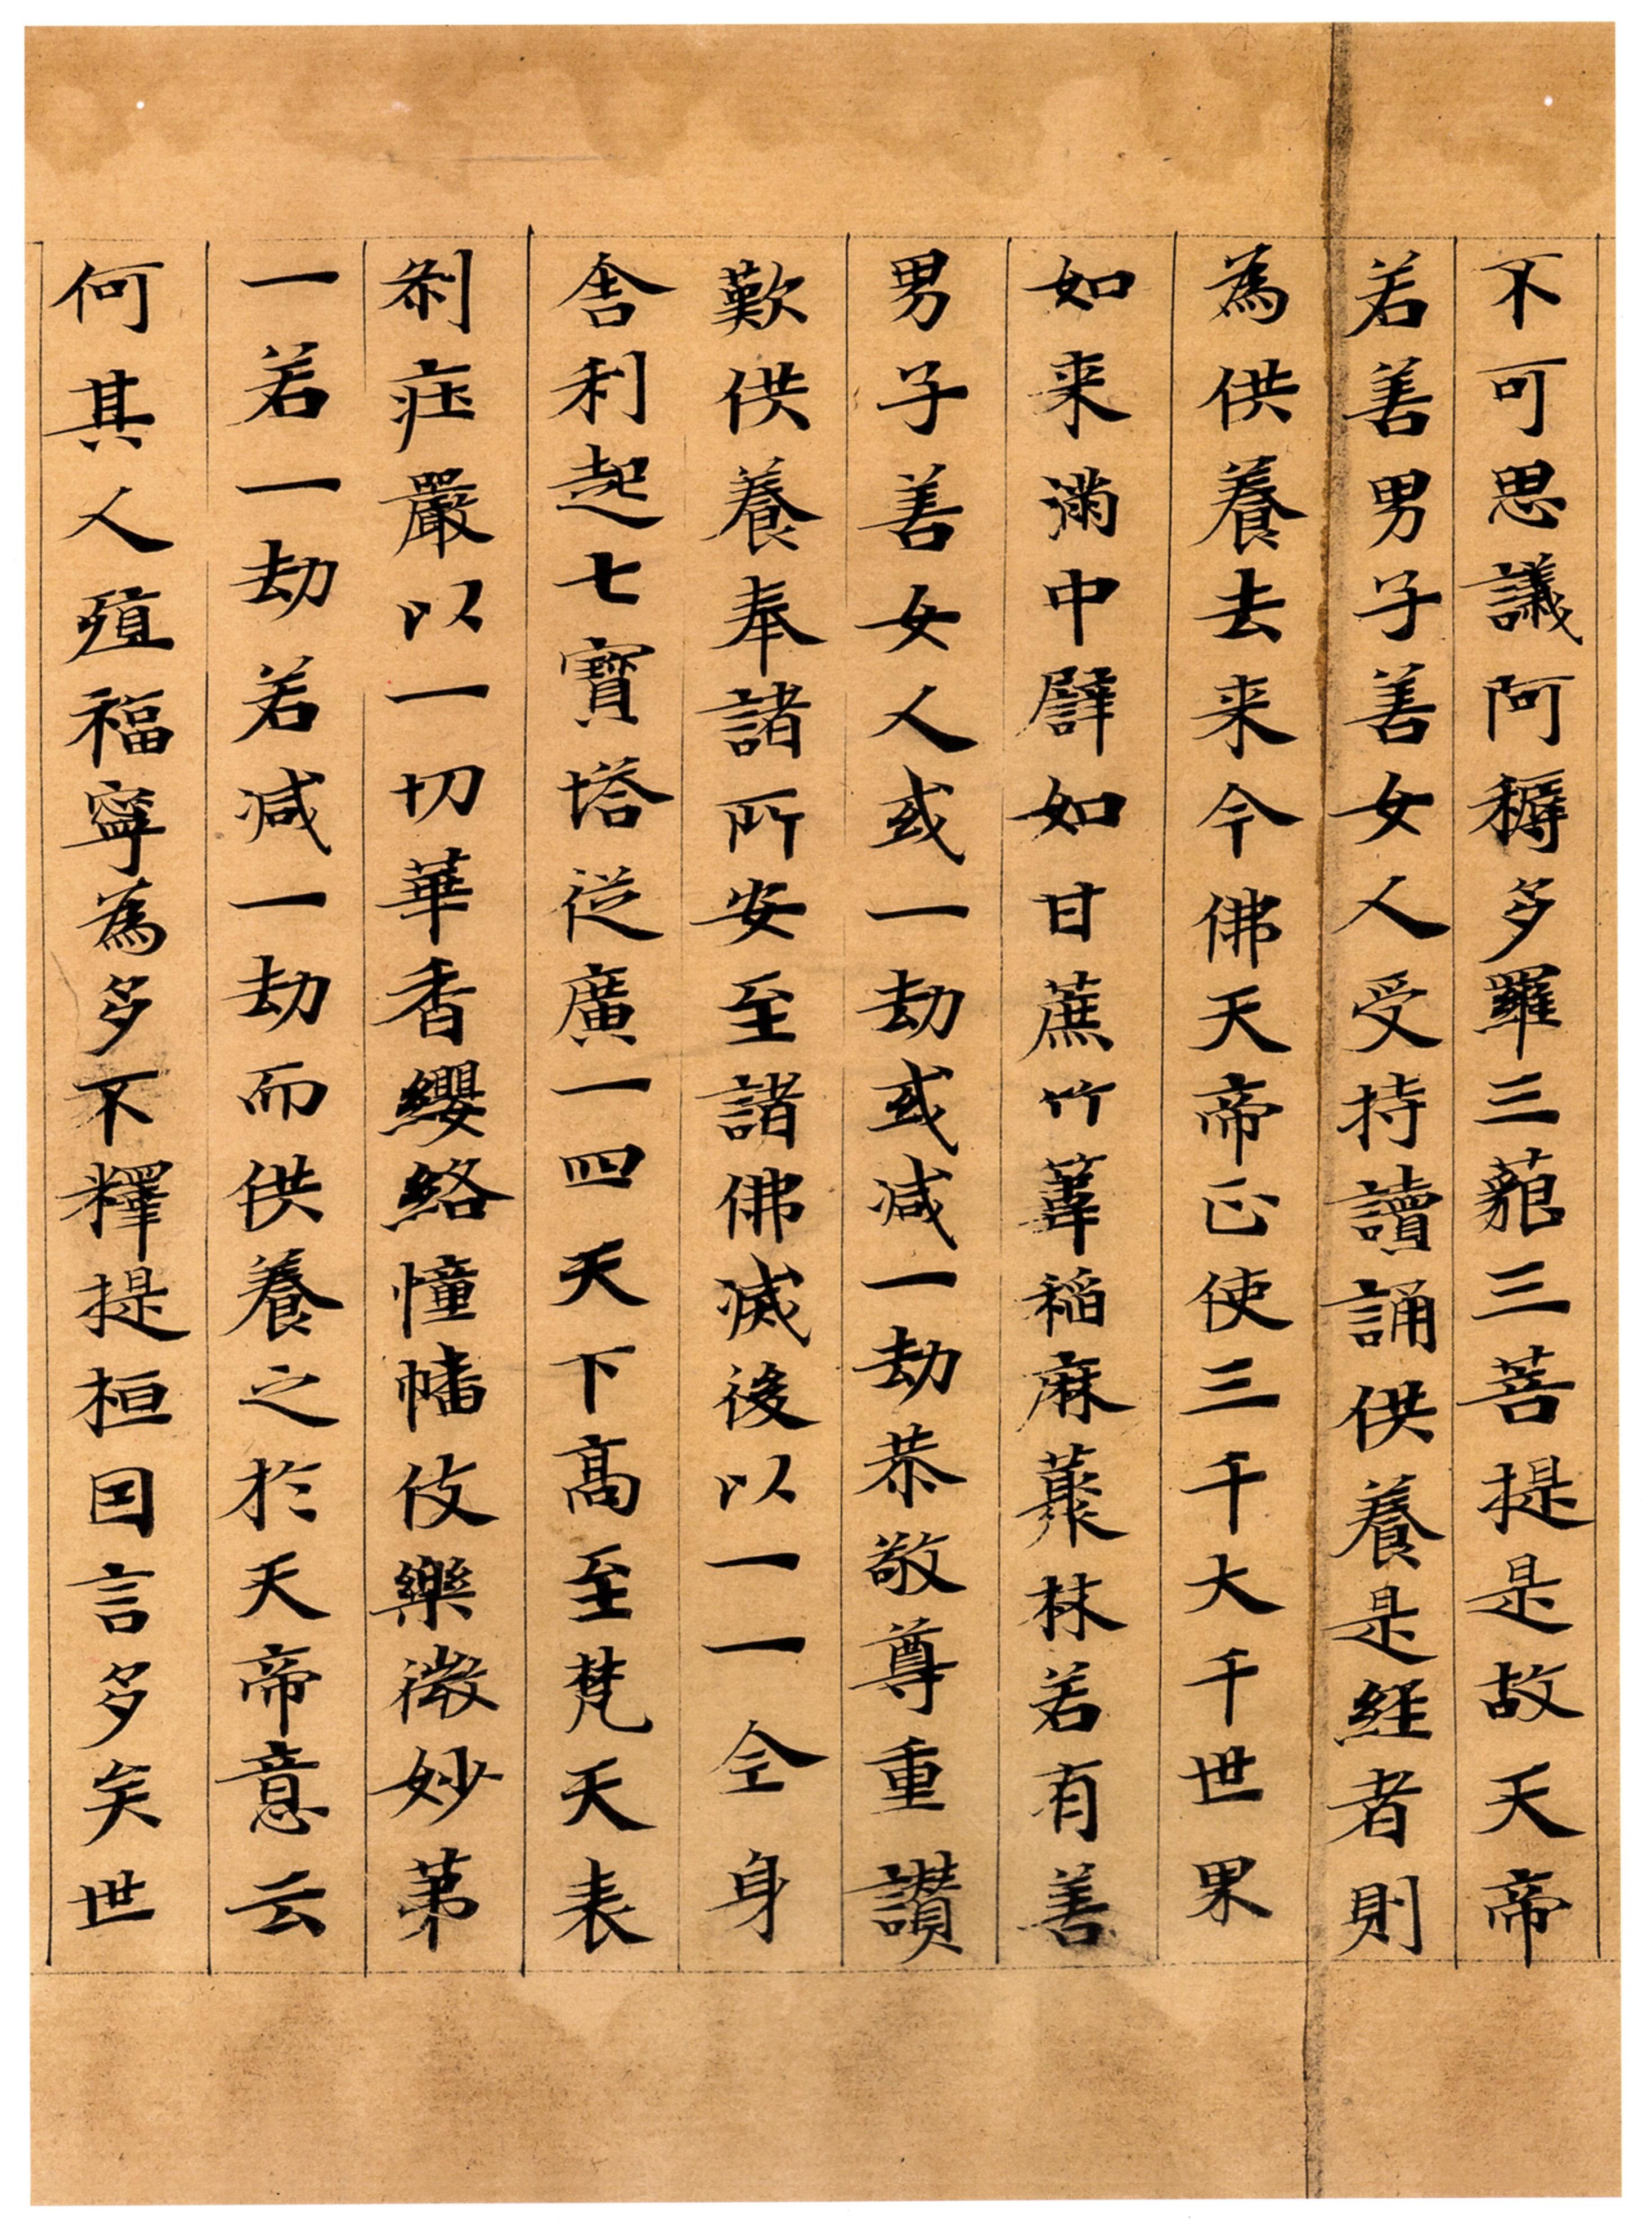 不可思議阿耨多羅三藐三菩提是故天帝
若善男子善女人受持讀誦供養是經者則
為供養去来今佛天帝正使三千大千世界
如来滿中譬如甘蔗竹葦稲麻藂林若有善
男子善女人或一劫或减一劫恭敬尊重讃
歎供養奉諸所安至諸佛滅後以一一全身
舍利起七寶塔従廣一四天下高至梵天表
刹庄嚴以一切華香纓絡幢幡伎樂微妙苐
一若一劫若减一劫而供養之於天帝意云
何其人殖福寧為多不釋提桓因言多矣世